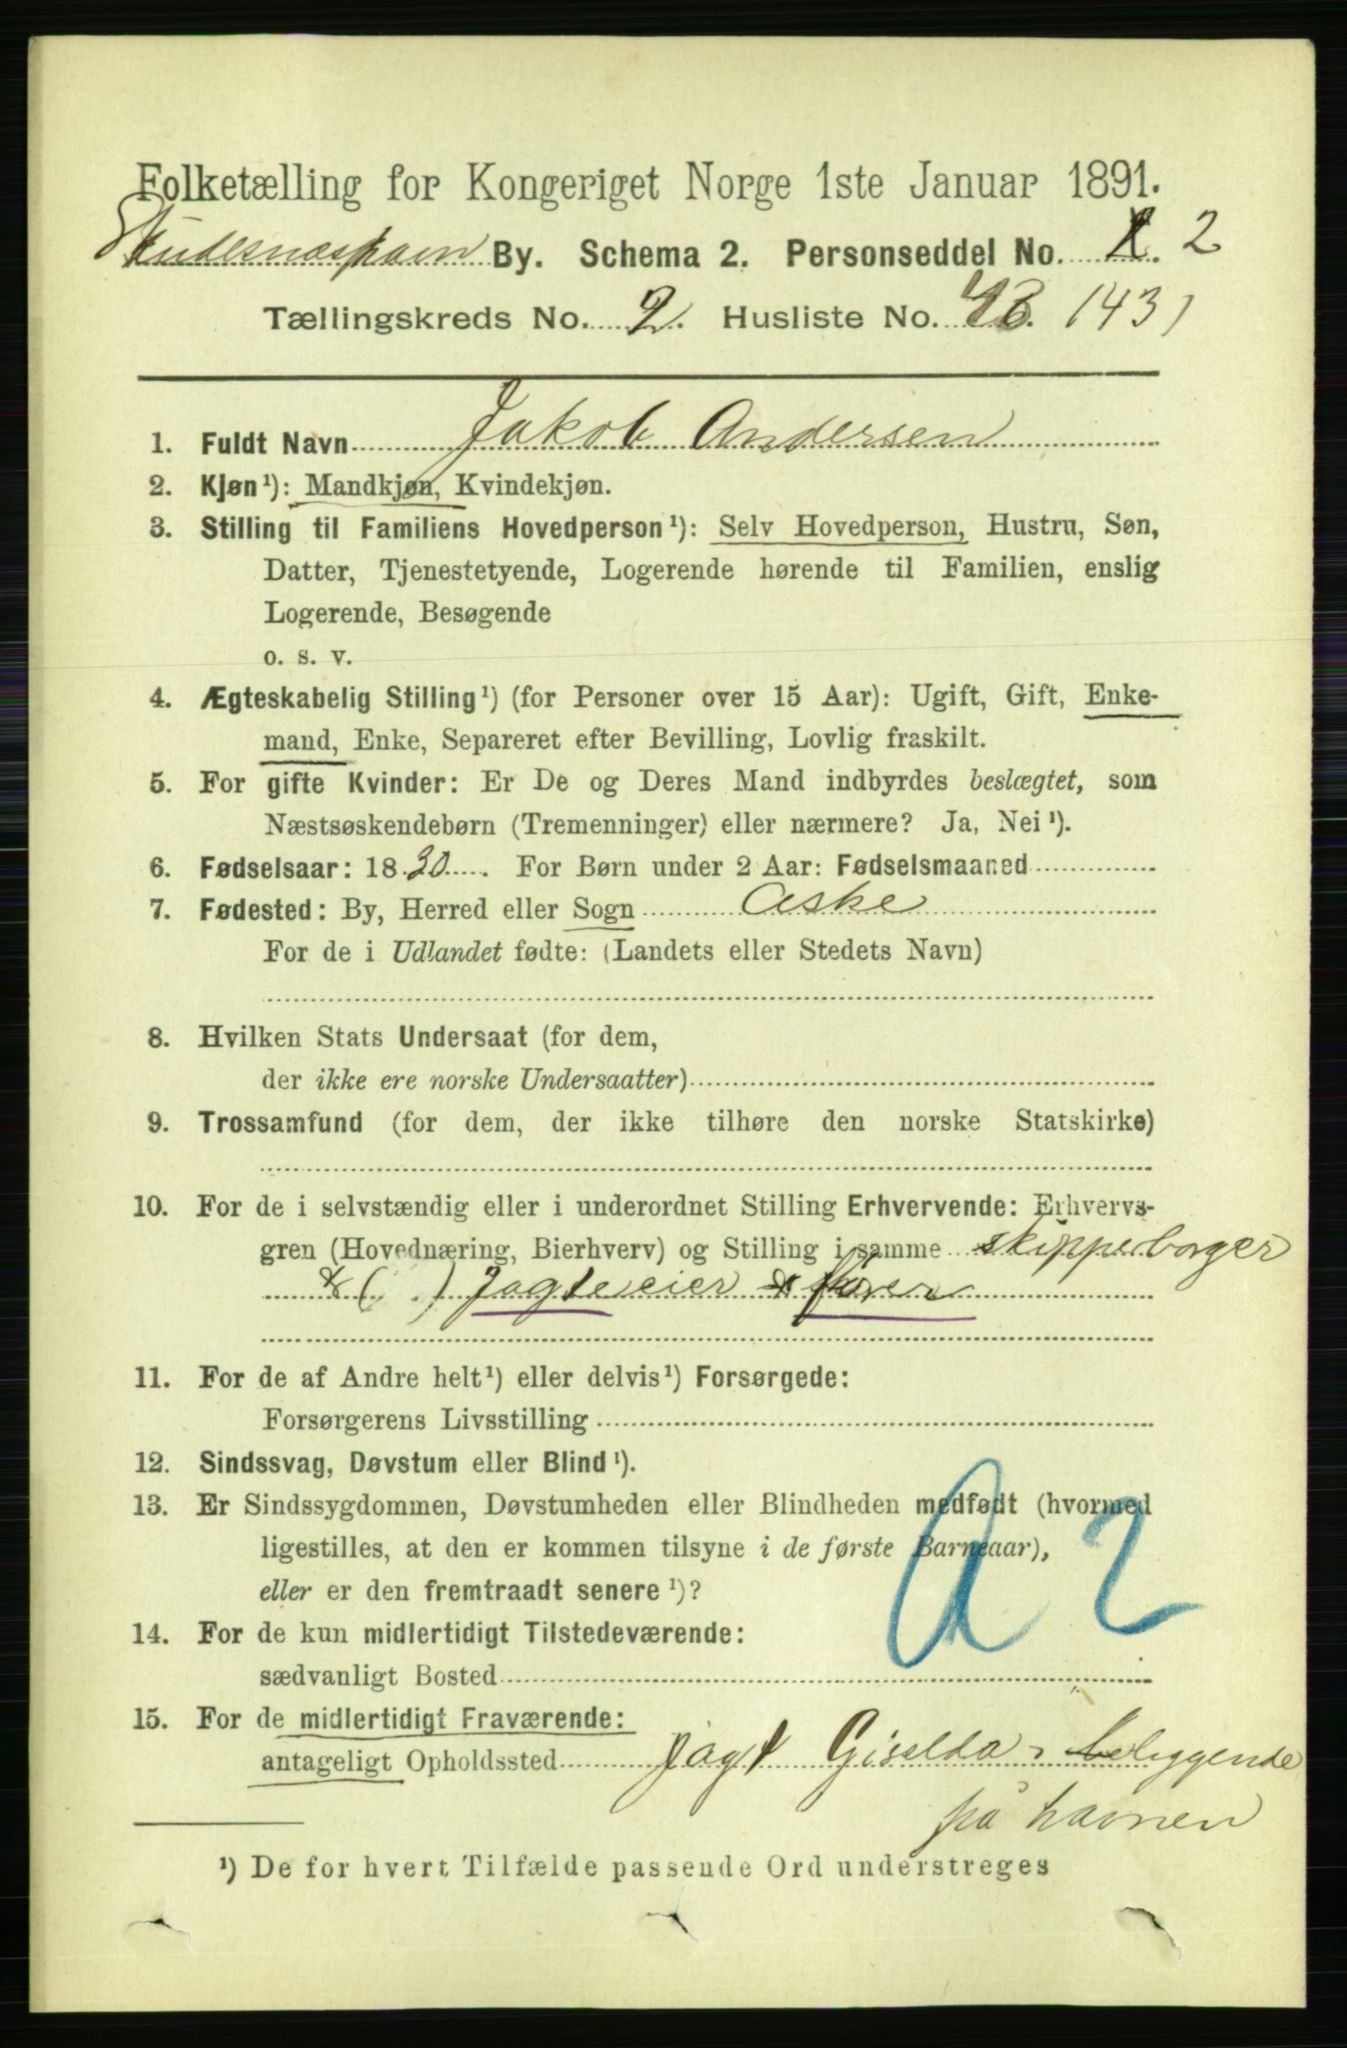 Folketælling for Kongeriget Norge 1ste Januar 1891.
Skudesnæshavn By. Schema 2. Personseddel No. 1. 2
Tællingskreds No. 2. Husliste No. 143
1. Fuldt Navn Jakob Andersen
2. Kjøn¹): Mandkjøn, Kvindekjøn.
3. Stilling til Familiens Hovedperson¹): Selv Hovedperson, Hustru, Søn,
Datter, Tjenestetyende, Logerende hørende til Familien, enslig
Logerende, Besøgende
o. s. v.
4. Ægteskabelig Stilling¹) (for Personer over 15 Aar): Ugift, Gift, Enke-
mand, Enke, Separeret efter Bevilling, Lovlig fraskilt.
5. For gifte Kvinder: Er De og Deres Mand indbyrdes beslægtet, som
Næstsøskendebørn (Tremenninger) eller nærmere? Ja, Nei¹).
6. Fødselsaar: 1830. For Børn under 2 Aar: Fødselsmaaned
7. Fødested: By, Herred eller Sogn Aske
For de i Udlandet fødte: (Landets eller Stedets Navn)
8. Hvilken Stats Undersaat (for dem,
der ikke ere norske Undersaatter)
9. Trossamfund (for dem, der ikke tilhøre den norske Statskirke)
10. For de i selvstændig eller i underordnet Stilling Erhvervende: Erhvervs-
gren (Hovednæring, Bierhverv) og Stilling i samme skipperborger
& ( ) Jagteeier & fører
11. For de af Andre helt¹) eller delvis¹) Forsørgede:
Forsørgerens Livsstilling
12. Sindssvag, Døvstum eller Blind¹).
13. Er Sindssygdommen, Døvstumheden eller Blindheden medfødt (hvormed
ligestilles, at den er kommen tilsyne i de første Barneaar),
eller er den fremtraadt senere¹)?
A 2
14. For de kun midlertidigt Tilstedeværende:
sædvanligt Bosted
15. For de midlertidigt Fraværende:
antageligt Opholdssted jagt Giselda, beliggende
på havnen
¹) De for hvert Tilfælde passende Ord understreges